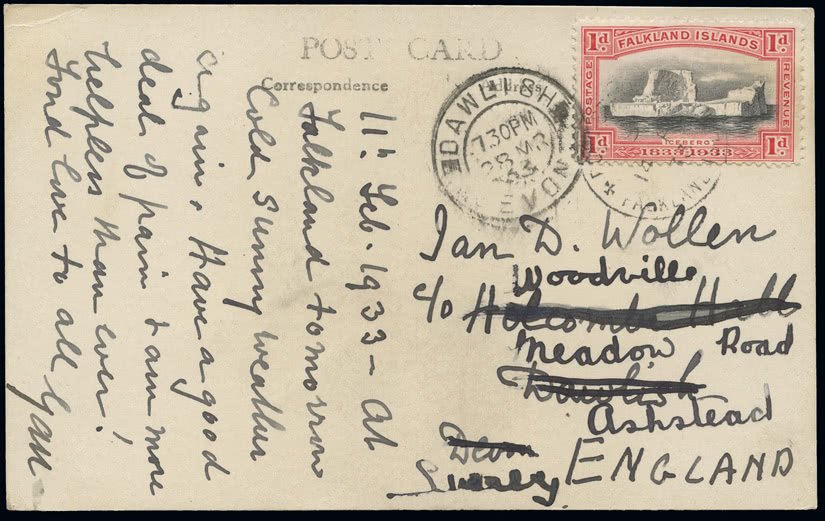 POST CARD
Correspondence
Address
11th Feb. 1933 - At
Falkland tomorrow
Cold sunny weather
again. Have a good
deal of pain & am more
helpless than ever!
Fond love to all
DAWLISH
7.30 PM
28 MR
33
DEVON
1d. FALKLAND ISLANDS 1d.
POSTAGE
REVENUE
ICEBERG
1d 1833-1933 1d
FALKLAND
Ian D. Wollen
Woodville
c/o Holcombe Hall
Meadow Road
Dawlish
Ashstead
Devon
Surrey ENGLAND